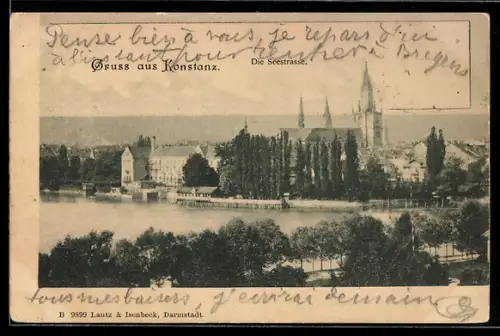 Pense bien à vous, je repars d'ici
à l'instant pour rentrer à Bregenz
Gruss aus Konstanz.
Die Seestrasse.
tous mes baisers, j'ecrirai demain
B 9899 Lautz & Isenbeck, Darmstadt.